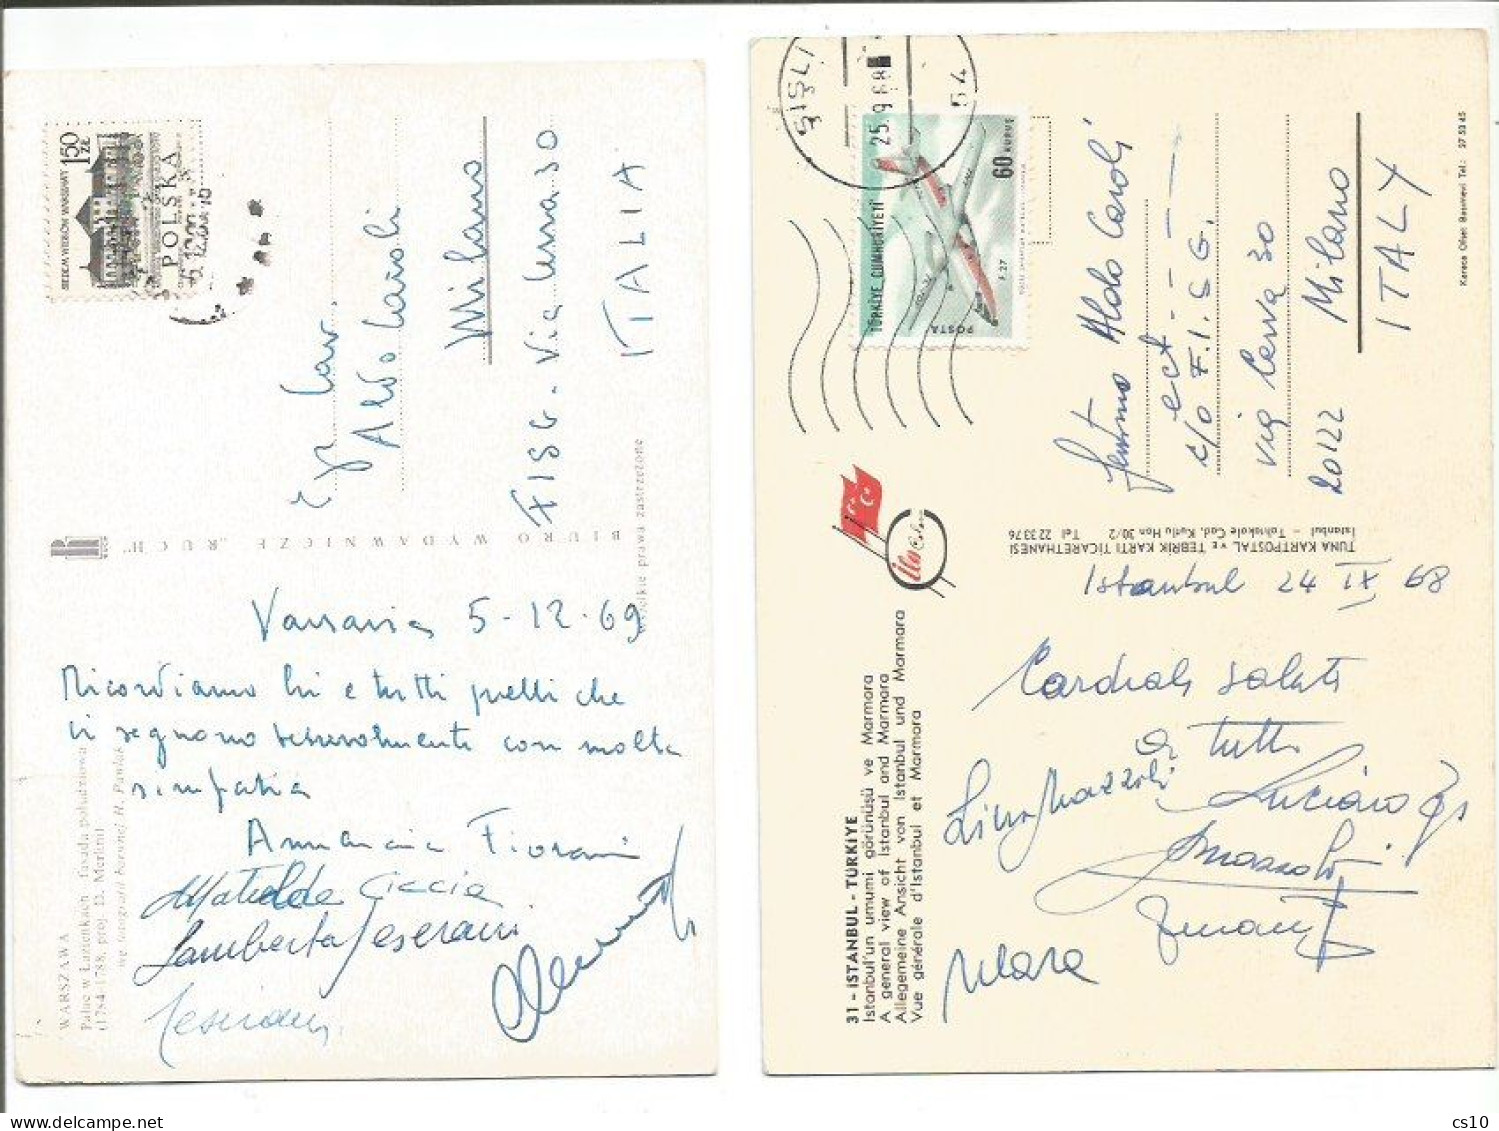 1.50 ZŁ
POLSKA
Egr. Cav.
Aldo Caroli
FISG. Via Cerva 30
Milano
ITALIA
BIURO WYDAWNICZE „RUCH”
Wszelkie prawa zastrzeżone
RUCH
Varsavia 5-12-69
Ricordiamo lei e tutti quelli che
vi segnano con molta
simpatia
Fiorani
Matilde Ciccia
Lamberta Jeserani
Jeserani
WARSZAWA
Pałac w Łazienkach - fasada południowa
(1784-1788, proj. D. Merlini)
wg fotografii barwnej
ŞİŞLİ
25.9.68
54
TÜRKİYE CUMHURİYETİ
60 KURUŞ
F.27
POSTA
Aldo Caroli
ect - - - -
c/o F.I.S.G.
via Cerva 30
20122 Milano
ITALY
Keraca Ofset Basımevi Tel.: 27 53 45
TUNA KARTPOSTAL ve TEBRİK KARTI TİCARETHANESİ
İstanbul - Tahtakale Cad. Kutlu Han 30/2 Tel 22 33 76
Istanbul 24 IX 68
Cordiali saluti
a tutti
Mara
31 - İSTANBUL - TÜRKİYE
İstanbul'un umumi görünüşü ve Marmara
A general view of Istanbul and Marmara
Allegemeine Ansicht von Istanbul und Marmara
Vue générale d'Istanbul et Marmara
cs10